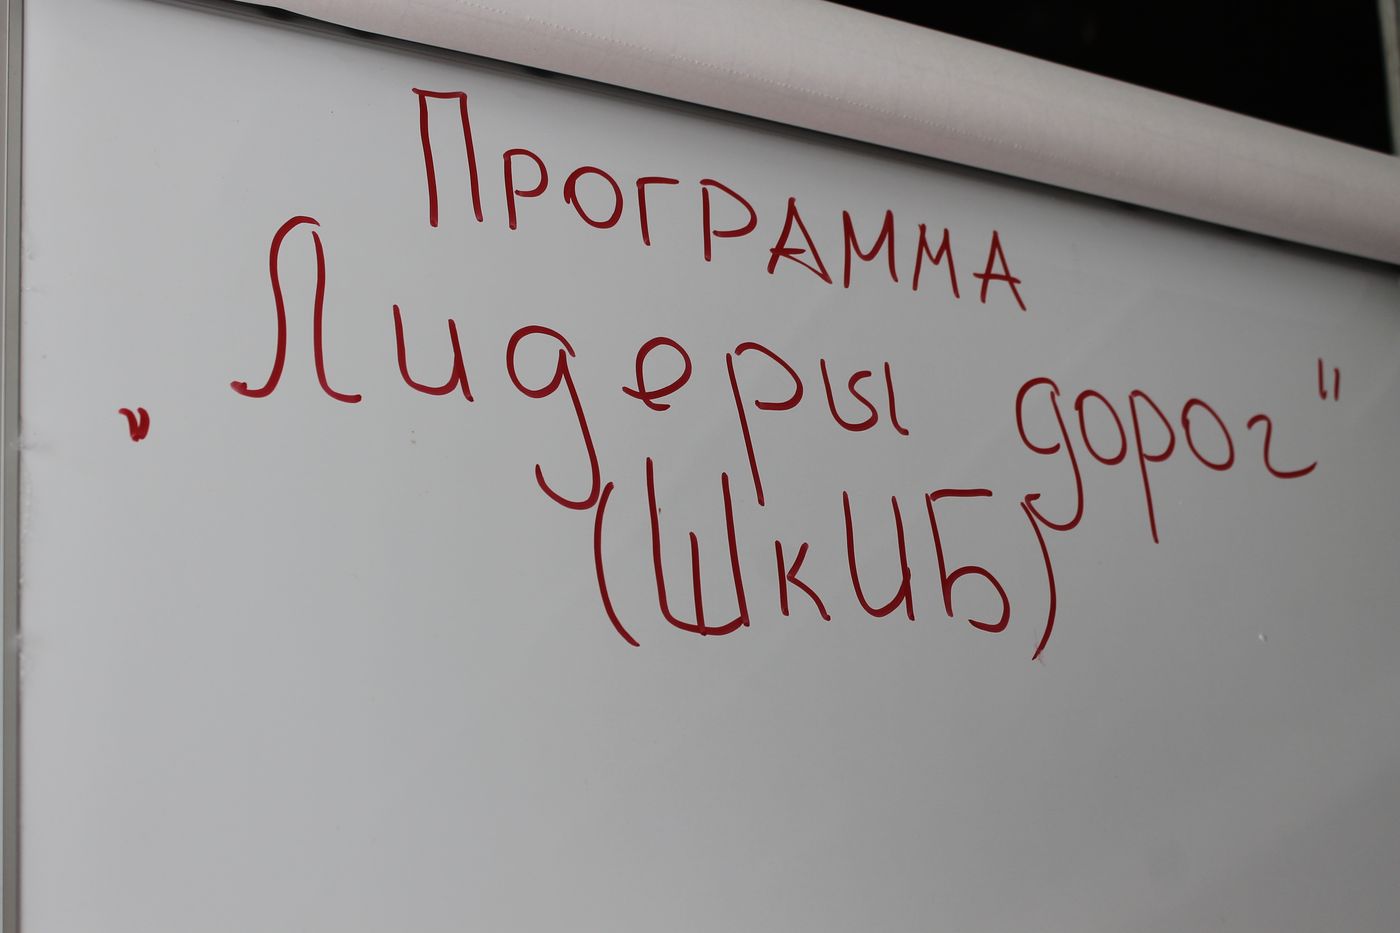 Программа
„Лидеры дорог"
(ШкИБ)